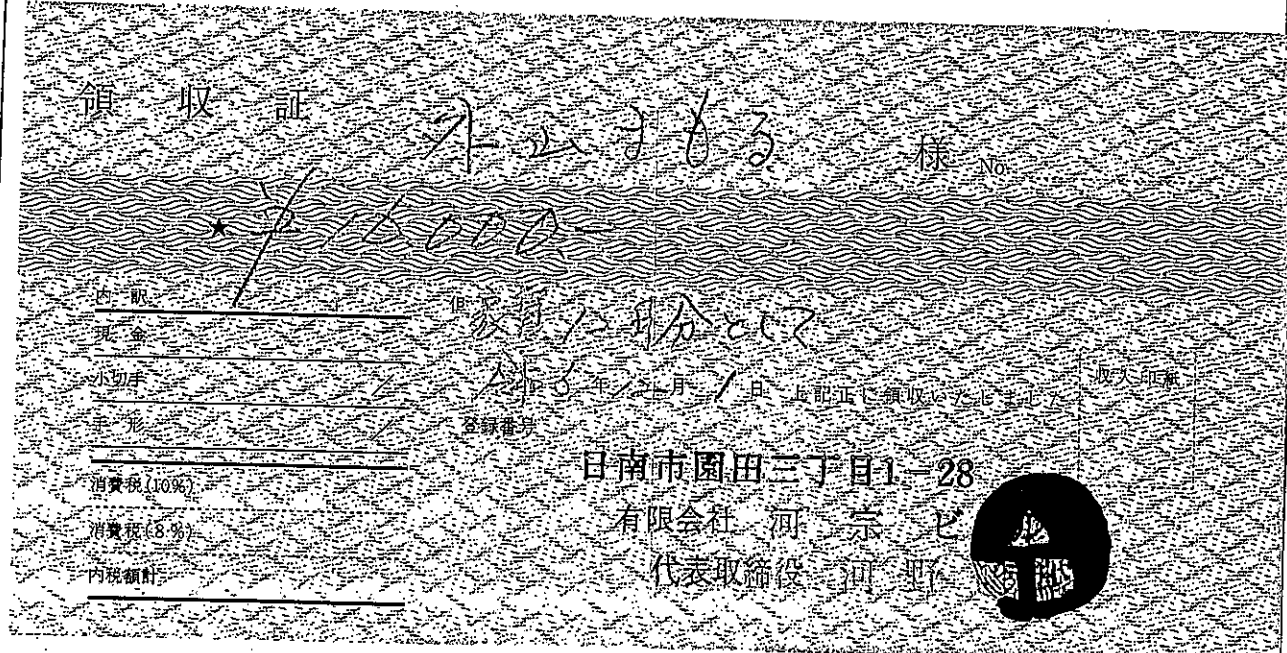 領収証
外山まもる 様 No.
★ ¥16000-
内訳
現金
小切手
手形
消費税(10%)
消費税(8%)
内税額計
但 家賃12月分として
年12月1日 上記正に領収いたしました
収入印紙
登録番号
日南市園田三丁目1-28
有限会社 河宗ビル
代表取締役 河野